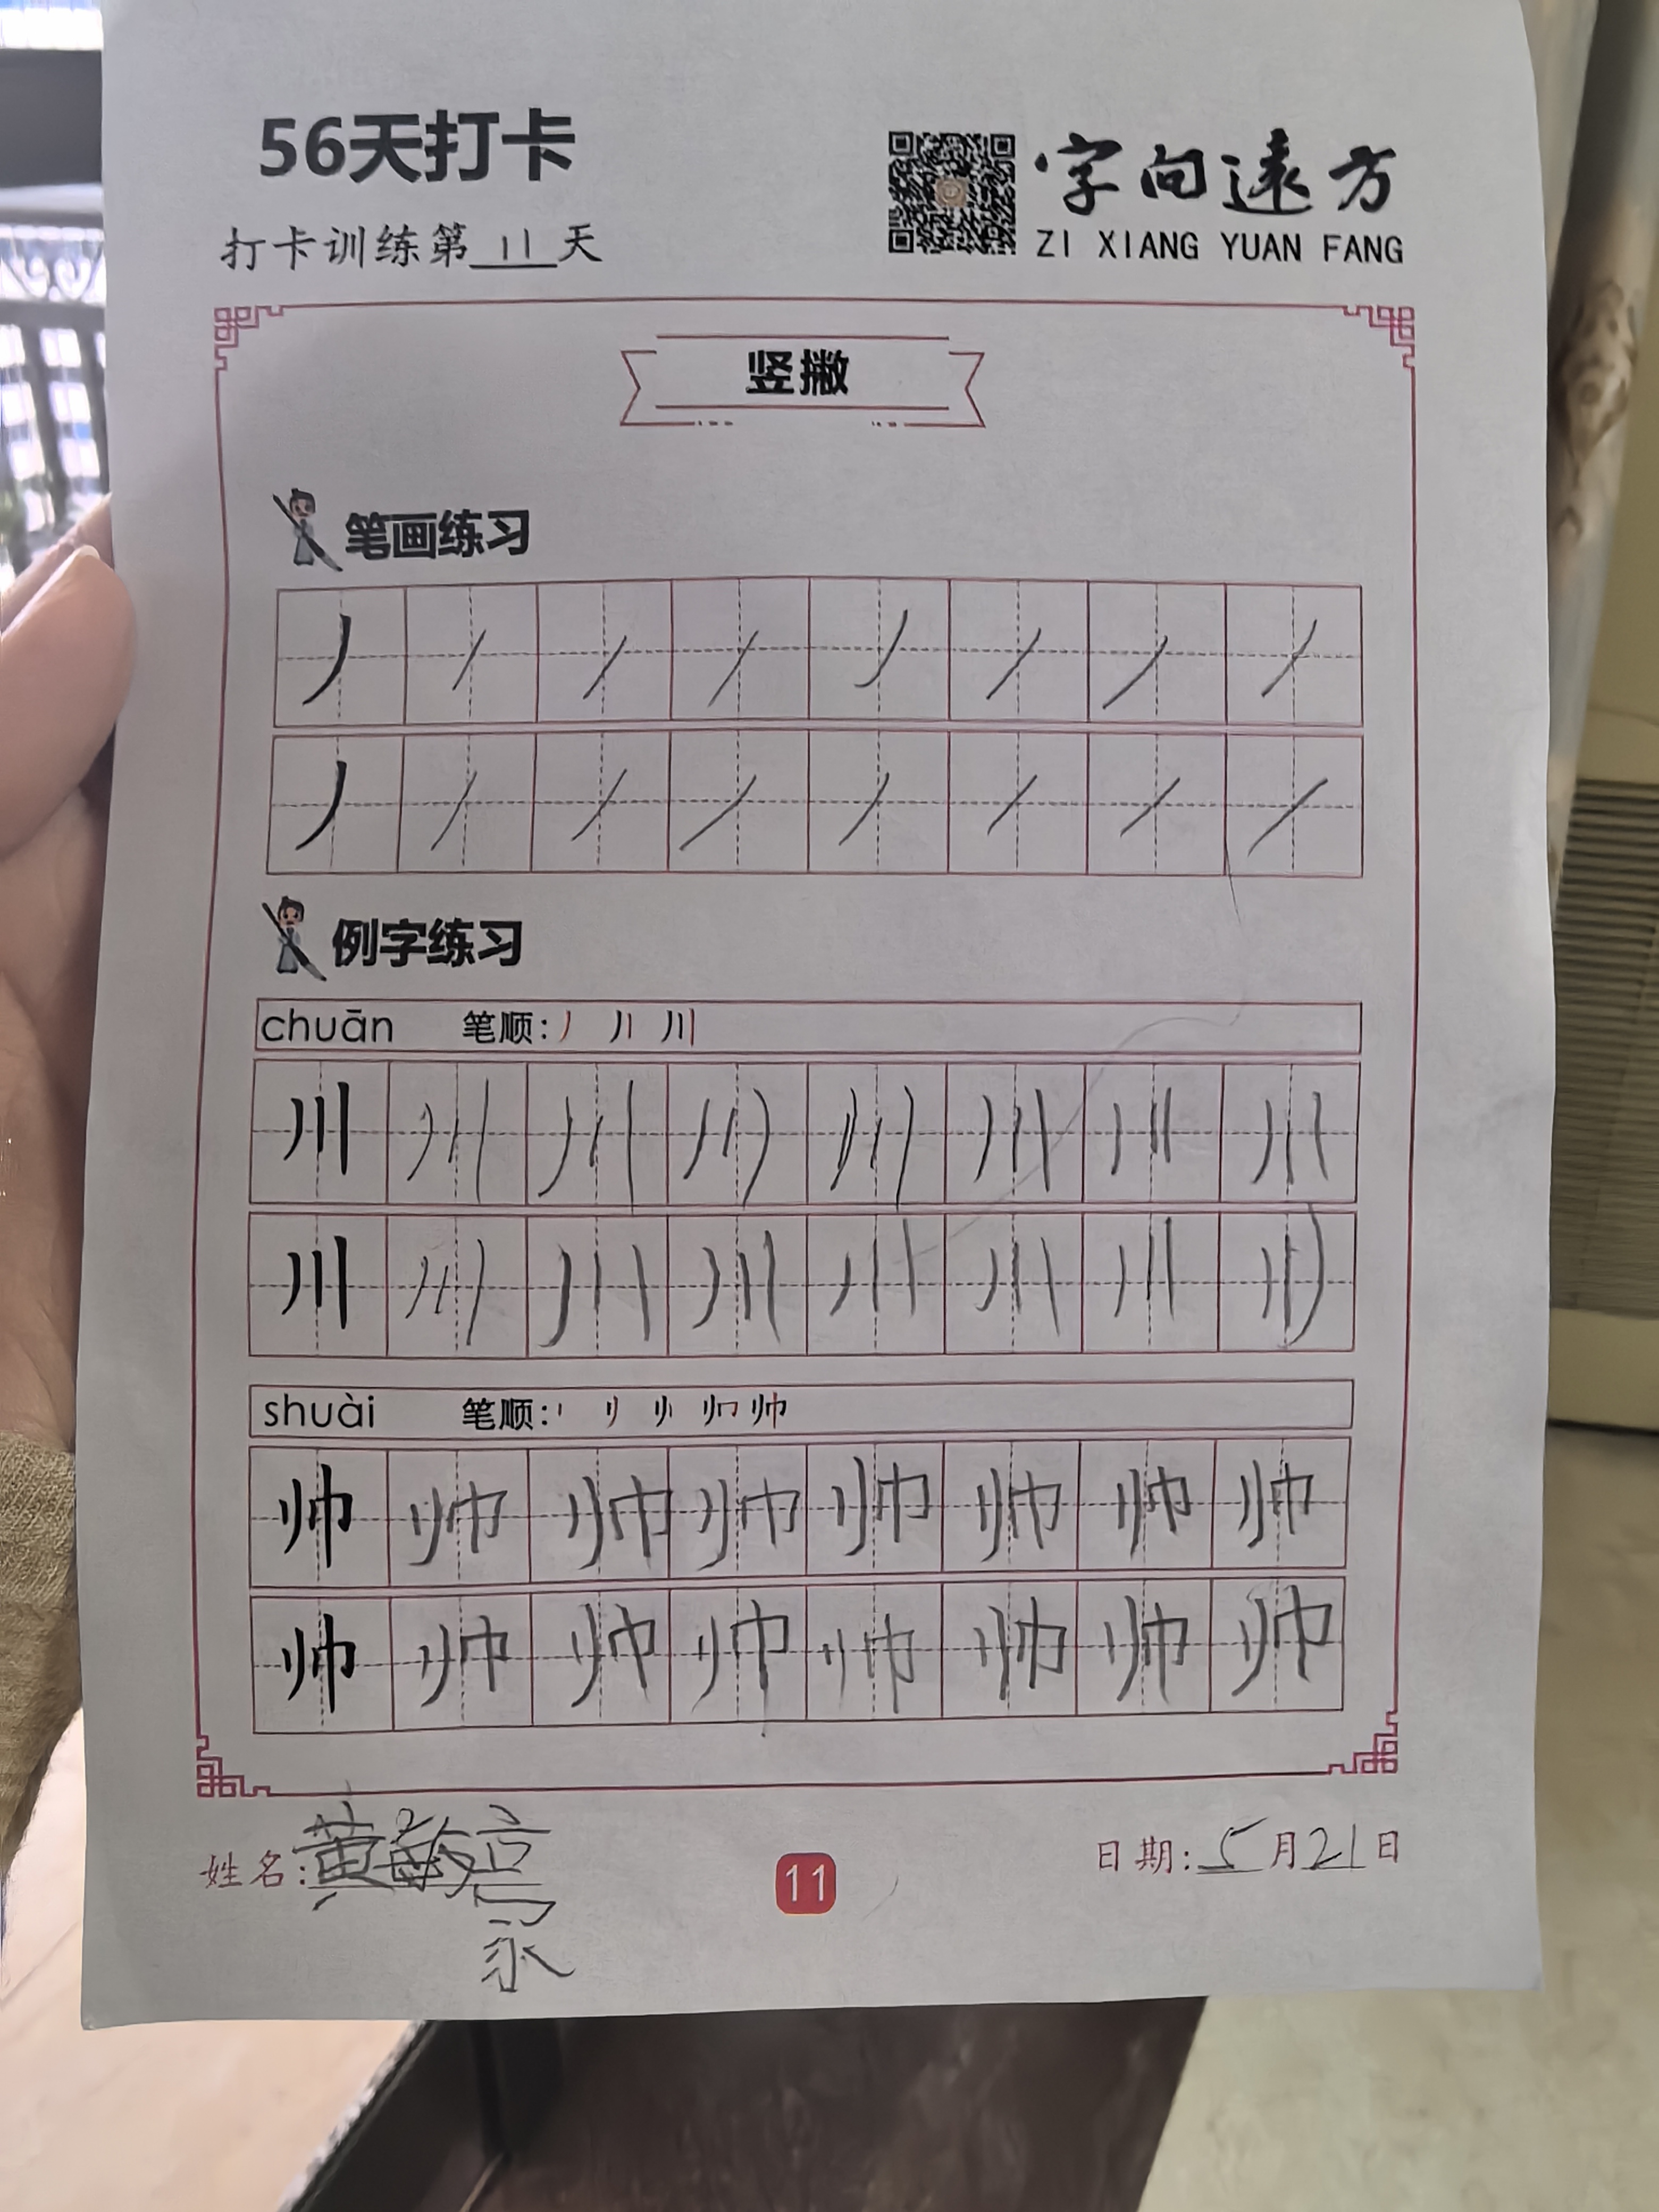 56天打卡
字向遠方
ZI XIANG YUAN FANG
打卡训练第 11 天
竖撇
笔画练习
丿 丿 丿 丿 丿 丿 丿 丿
丿 丿 丿 丿 丿 丿 丿 丿
例字练习
chuān 笔顺: 丿 川
川 川 川 川 川 川 川 川
川 川 川 川 川 川 川 川
shuài 笔顺: 帅
帅 帅 帅 帅 帅 帅 帅 帅
帅 帅 帅 帅 帅 帅 帅 帅
姓名: 黄
11
日期: 5月21日